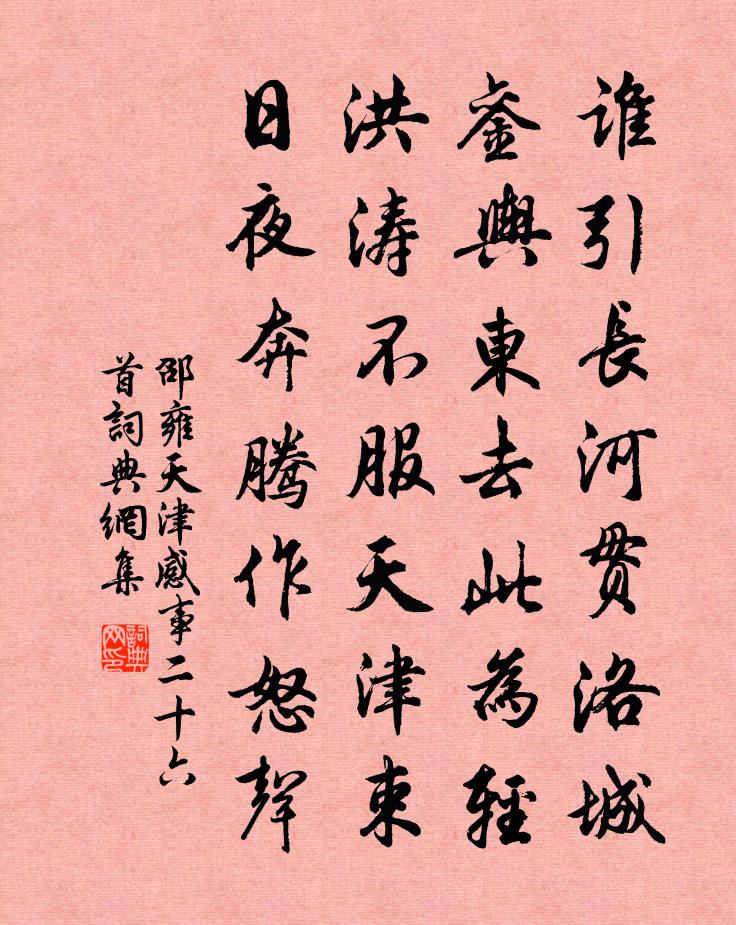 誰引長河貫洛城
銮輿東去此為輕
洪涛不服天津束
日夜奔騰作怒聲
邵雍天津感事二十六
首詞典網集
詞典网印